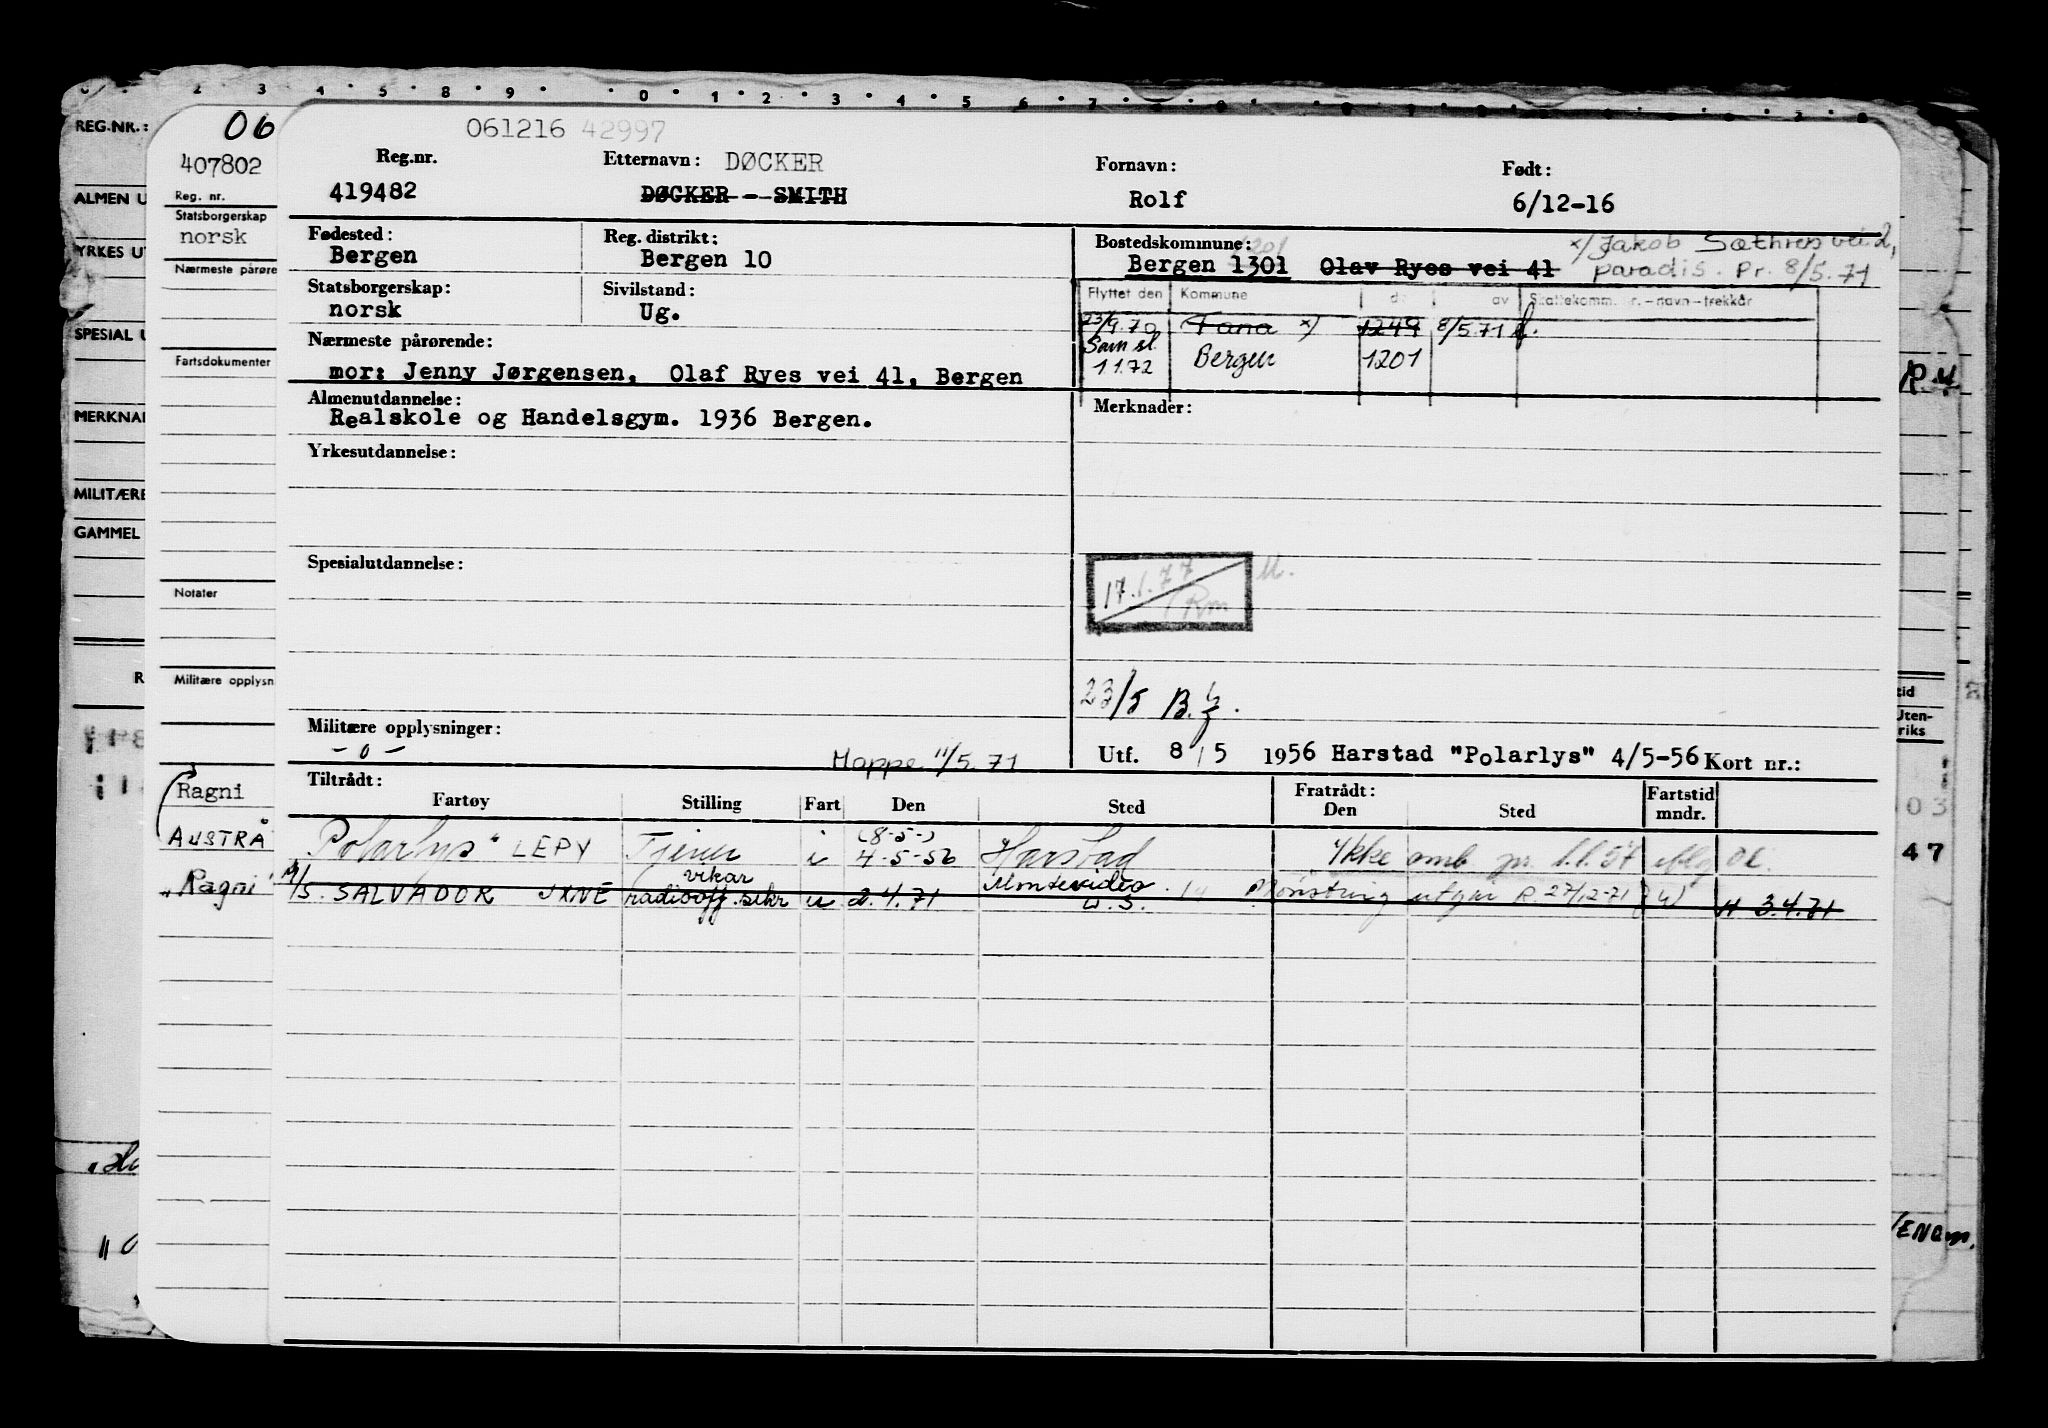 2 3 4 5 8 9 0 1 2 3 4 5 6 7 8 9
REG.NR.:
ALMEN U
YRKES UT
SPESIAL U
MERKNAD
MILITÆRE
GAMMEL
R
06
407802
Reg. nr.
Statsborgerskap
norsk
Nærmeste pårøre
Fartsdokumenter
Notater
Militære opplysn
Ragni
AUSTRÅ
"Ragni"
061216 42997
Reg.nr. Etternavn: DØCKER Fornavn: Født:
419482 DØCKER - SMITH Rolf 6/12-16
Fødested: Reg. distrikt: Bostedskommune: 1201 x/ Jakob Sæthres vei 2,
Bergen Bergen 10 Bergen 1301 Olav Ryes vei 41 paradis. Pr. 8/5.71
Statsborgerskap: Sivilstand: Flyttet den Kommune av Skattekomm. nr.-navn-trekkår
norsk Ug. 23/9.70 Fana x) 1249 8/5.71
Nærmeste pårørende: Sam sl.
mor: Jenny Jørgensen, Olaf Ryes vei 41, Bergen 1 1.72 Bergen 1201
Almenutdannelse: Merknader:
Realskole og Handelsgym. 1936 Bergen.
Yrkesutdannelse:
Spesialutdannelse:
17.1.77 M.
Rm
23/5 B.
Militære opplysninger:
- 0 - Mappe 11/5.71 Utf. 8/5 1956 Harstad "Polarlys" 4/5-56 Kort nr.:
Tiltrådt: Fratrådt: Fartstid
Fartøy Stilling Fart Den Sted Den Sted mndr.
"Polarlys" LEPY Tjener i (8-5-) 4-5-56 Harstad Ikke omb pr. 1.1.57
M/S. SALVADOR JXNE vikar radiooff. sekr u 2.4.71 Montevideo Mønstring utgår R. 27/12-71 H 3.4.71
R.M.
tid
Uten-
riks
03
47